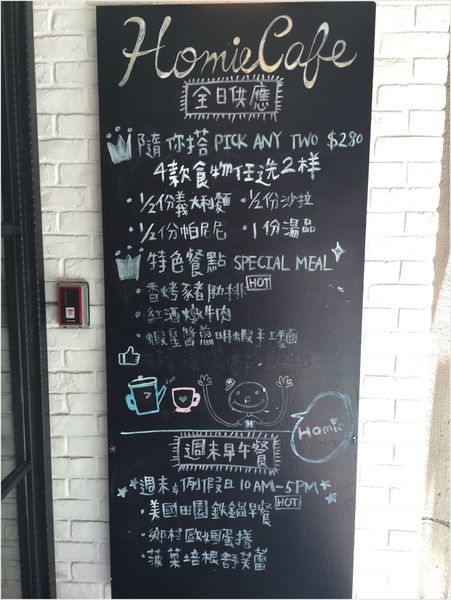 Homie Cafe
全日供應
隨你搭 PICK ANY TWO $280
4款食物任选2样
·1/2份義大利麵 ·1/2份沙拉
·1/2份帕尼尼 ·1份湯品
特色餐點 SPECIAL MEAL
·香烤豬肋排 HOT
·紅酒燉牛肉
·蝦醬煎明蝦手工麵
Homie
週末早午餐
週末&例假日10AM-5PM
·美國田園鉄鍋早餐 HOT
·鄉村歐姆蛋捲
·菠菜培根舒芙蕾